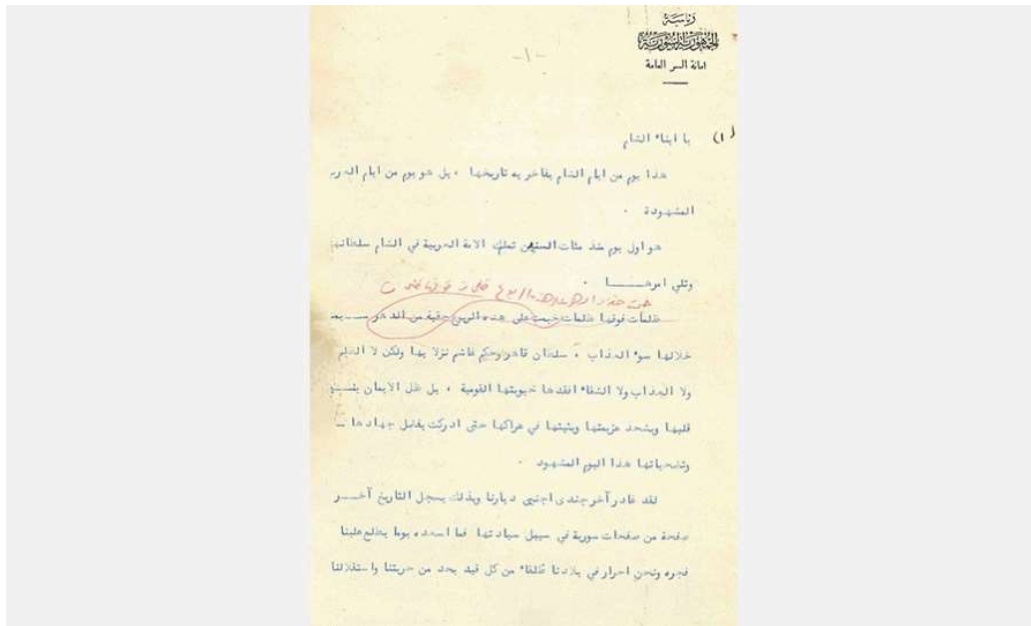 رئاسة
الجمهورية السورية
امانة السر العامة
-١-
(١) يا ابناء الشام
هذا يوم من ايام الشام يفاخر به تاريخها ، بل هو يوم من ايام العرب
المشهودة .
هو اول يوم منذ مئات السنين تملك الامة العربية في الشام سلطانها
وتلي امرهـــا .
ظلمات فوقها ظلمات خيمت على هذه الربوع حقبة من الدهر
خلالها سوء العذاب ، سلطان قاهر وحكم غاشم نزلا بها ولكن لا الظلم
ولا العذاب ولا الشقاء افقدها حيويتها القومية ، بل ظل الايمان
قلبها ويشحذ عزيمتها ويثبتها في عراكها حتى ادركت بفضل جهادها ــ
وتضحياتها هذا اليوم المشهود .
لقد غادر آخر جندى اجنبي ديارنا وبذلك يسجل التاريخ آخـــر
صفحة من صفحات سورية في سبيل سيادتها فما اسعده يوما يطلع علينا
فجره ونحن احرار في بلادنا طلقاء من كل قيد يحد من حريتنا واستقلالنا